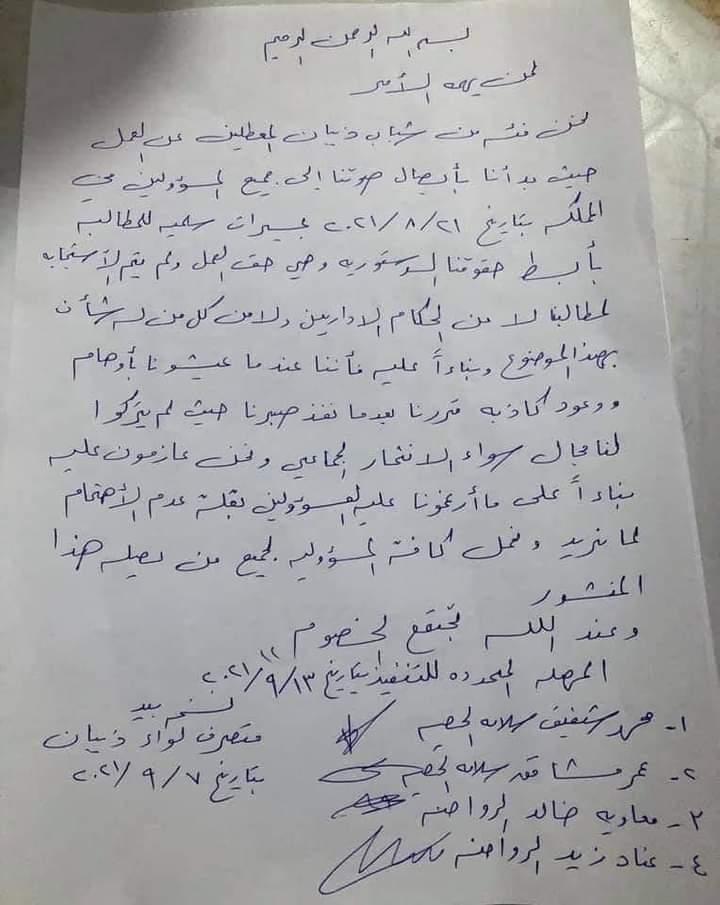 بسم الله الرحمن الرحيم
لمن يهمه الأمر
نحن فئة من شباب ذيبان المعطلين عن العمل
حيث بدأنا بأيصال صوتنا إلى جميع المسؤولين في
المملكه بتاريخ ٢٠٢١/٨/٢١ بمسيرات سلميه للمطالبه
بأبسط حقوقنا الدستوريه وهي حق العمل ولم يتم الأستجابه
لمطالبنا لا من الحكام الاداريين ولا من كل من له شأن
بهذا الموضوع وبناءاً عليه فأننا عندما عيشونا بأوهام
ووعود كاذبه قررنا بعدما نفذ صبرنا حيث لم يتركوا
لنا مجال سواء الانتحار الجماعي ونحن عازمون عليه
بناءاً على ما أرغمونا عليه المسؤولين بقلة عدم الأهتمام
لما نريد ونحمل كافة المسؤوليه لجميع من يصله هذا
المنشور
وعند الله تجتمع الخصوم
المهله المحدده للتنفيذ بتاريخ ٢٠٢١/٩/١٣
١- محمد شفيق سلامه الحيصه
٢- عمر سلامه الحيصه
٣- معاويه خالد الرواحنه
٤- عناد زيد الرواحنه
نسخه بيد
متصرف لواء ذيبان
بتاريخ ٢٠٢١/٩/٧